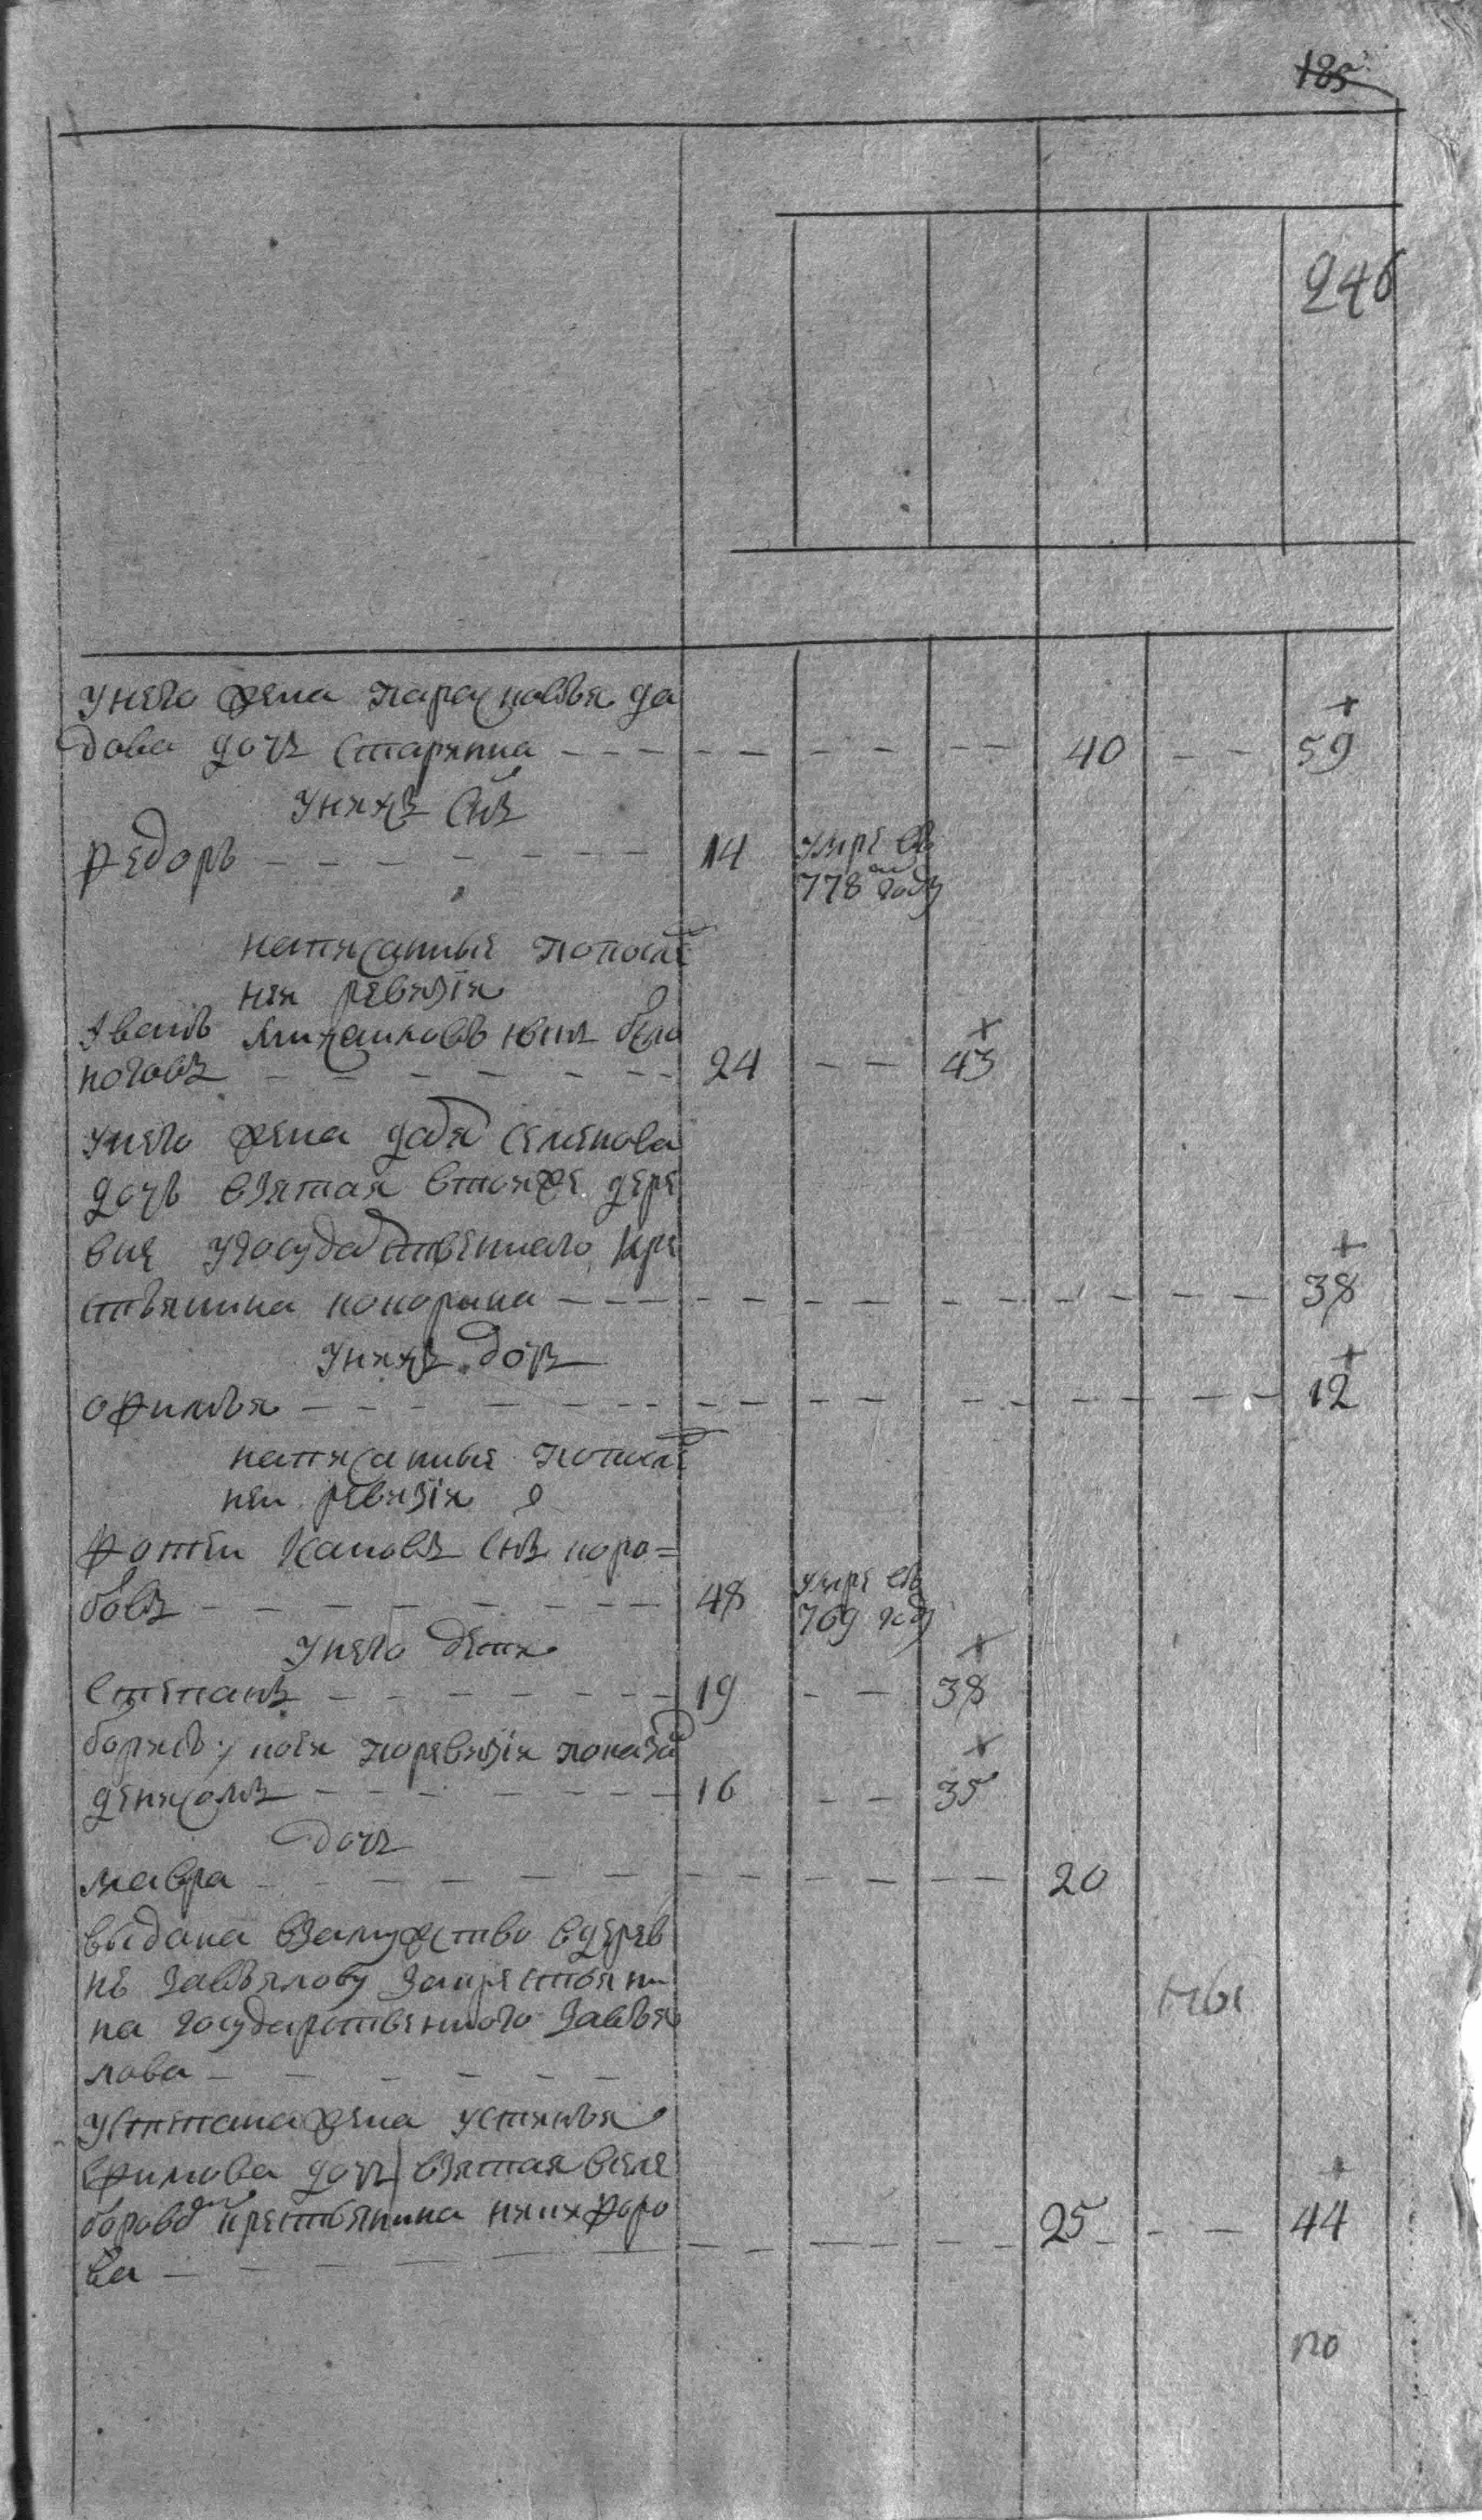 185
246
у него жена парасковья да
дова дочь старикна — 40 — 59
у них снъ
Федоръ — 14 умре въ
778м году
написанныя попослѣ
ней ревизiи
Иванъ Михаиловъ снъ бело
ноговъ — 24 — 43
у него жена дарья семенова
дочь взятая втойже дере
вне у государственного кре
стьянина кокорина — 38
у них дочь
офимья — 12
написанные попослѣ
ней ревизiи
Фотѣи снъ коро=
бовъ — 48 умре въ
769 году
у него дети
степанъ — 19 — 38
борисъ ноея поревизiи показа
денисомъ — 16 — 35
дочь
мавра — 20
выдана взамужство вдерев
не завьялову за крестьяни
на государственного завья
лова —
устепана жена устинья
ефимова дочь взятая вселе
крестьянина никифоро
ва — 25 — 44
по